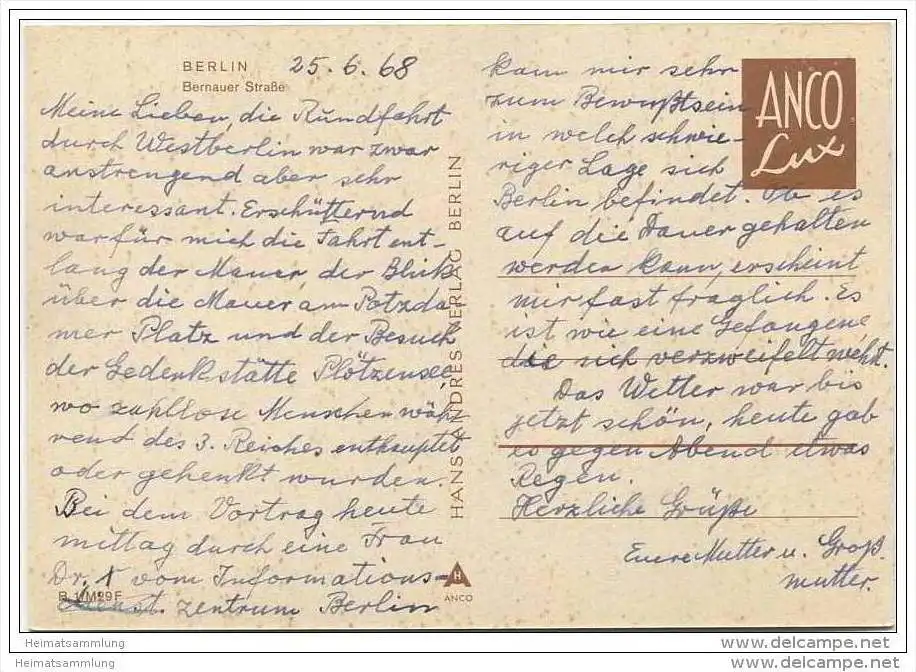 BERLIN 25.6.68
Bernauer Straße
Meine Lieben, die Rundfahrt
durch Westberlin war zwar
anstrengend aber sehr
interessant. Erschütternd
war für mich die Fahrt ent-
lang der Mauer, der Blick
über die Mauer am Potzda-
mer Platz und der Besuch
der Gedenkstätte Plötzensee,
wo zahllose Menschen wäh-
rend des 3. Reiches enthauptet
oder gehenkt wurden.
Bei dem Vortrag heute
mittag durch eine Frau
Dr. vom Informations-
dienst. zentrum Berlin
B 1/M29F
HANS ANDRES VERLAG BERLIN
H
ANCO
kam mir sehr
zum Bewußtsein
in welch schwie-
riger Lage sich
Berlin befindet. Ob es
auf die Dauer gehalten
werden kann, erscheint
mir fast fraglich. Es
ist wie eine Gefangene
die sich verzweifelt wehrt.
Das Wetter war bis
jetzt schön, heute gab
es gegen Abend etwas
Regen.
Herzliche Grüße
Eure Mutter u. Groß-
mutter.
ANCO
Lux
Heimatsammlung
Heimatsammlung
www.delcampe.net
www.delcampe.net